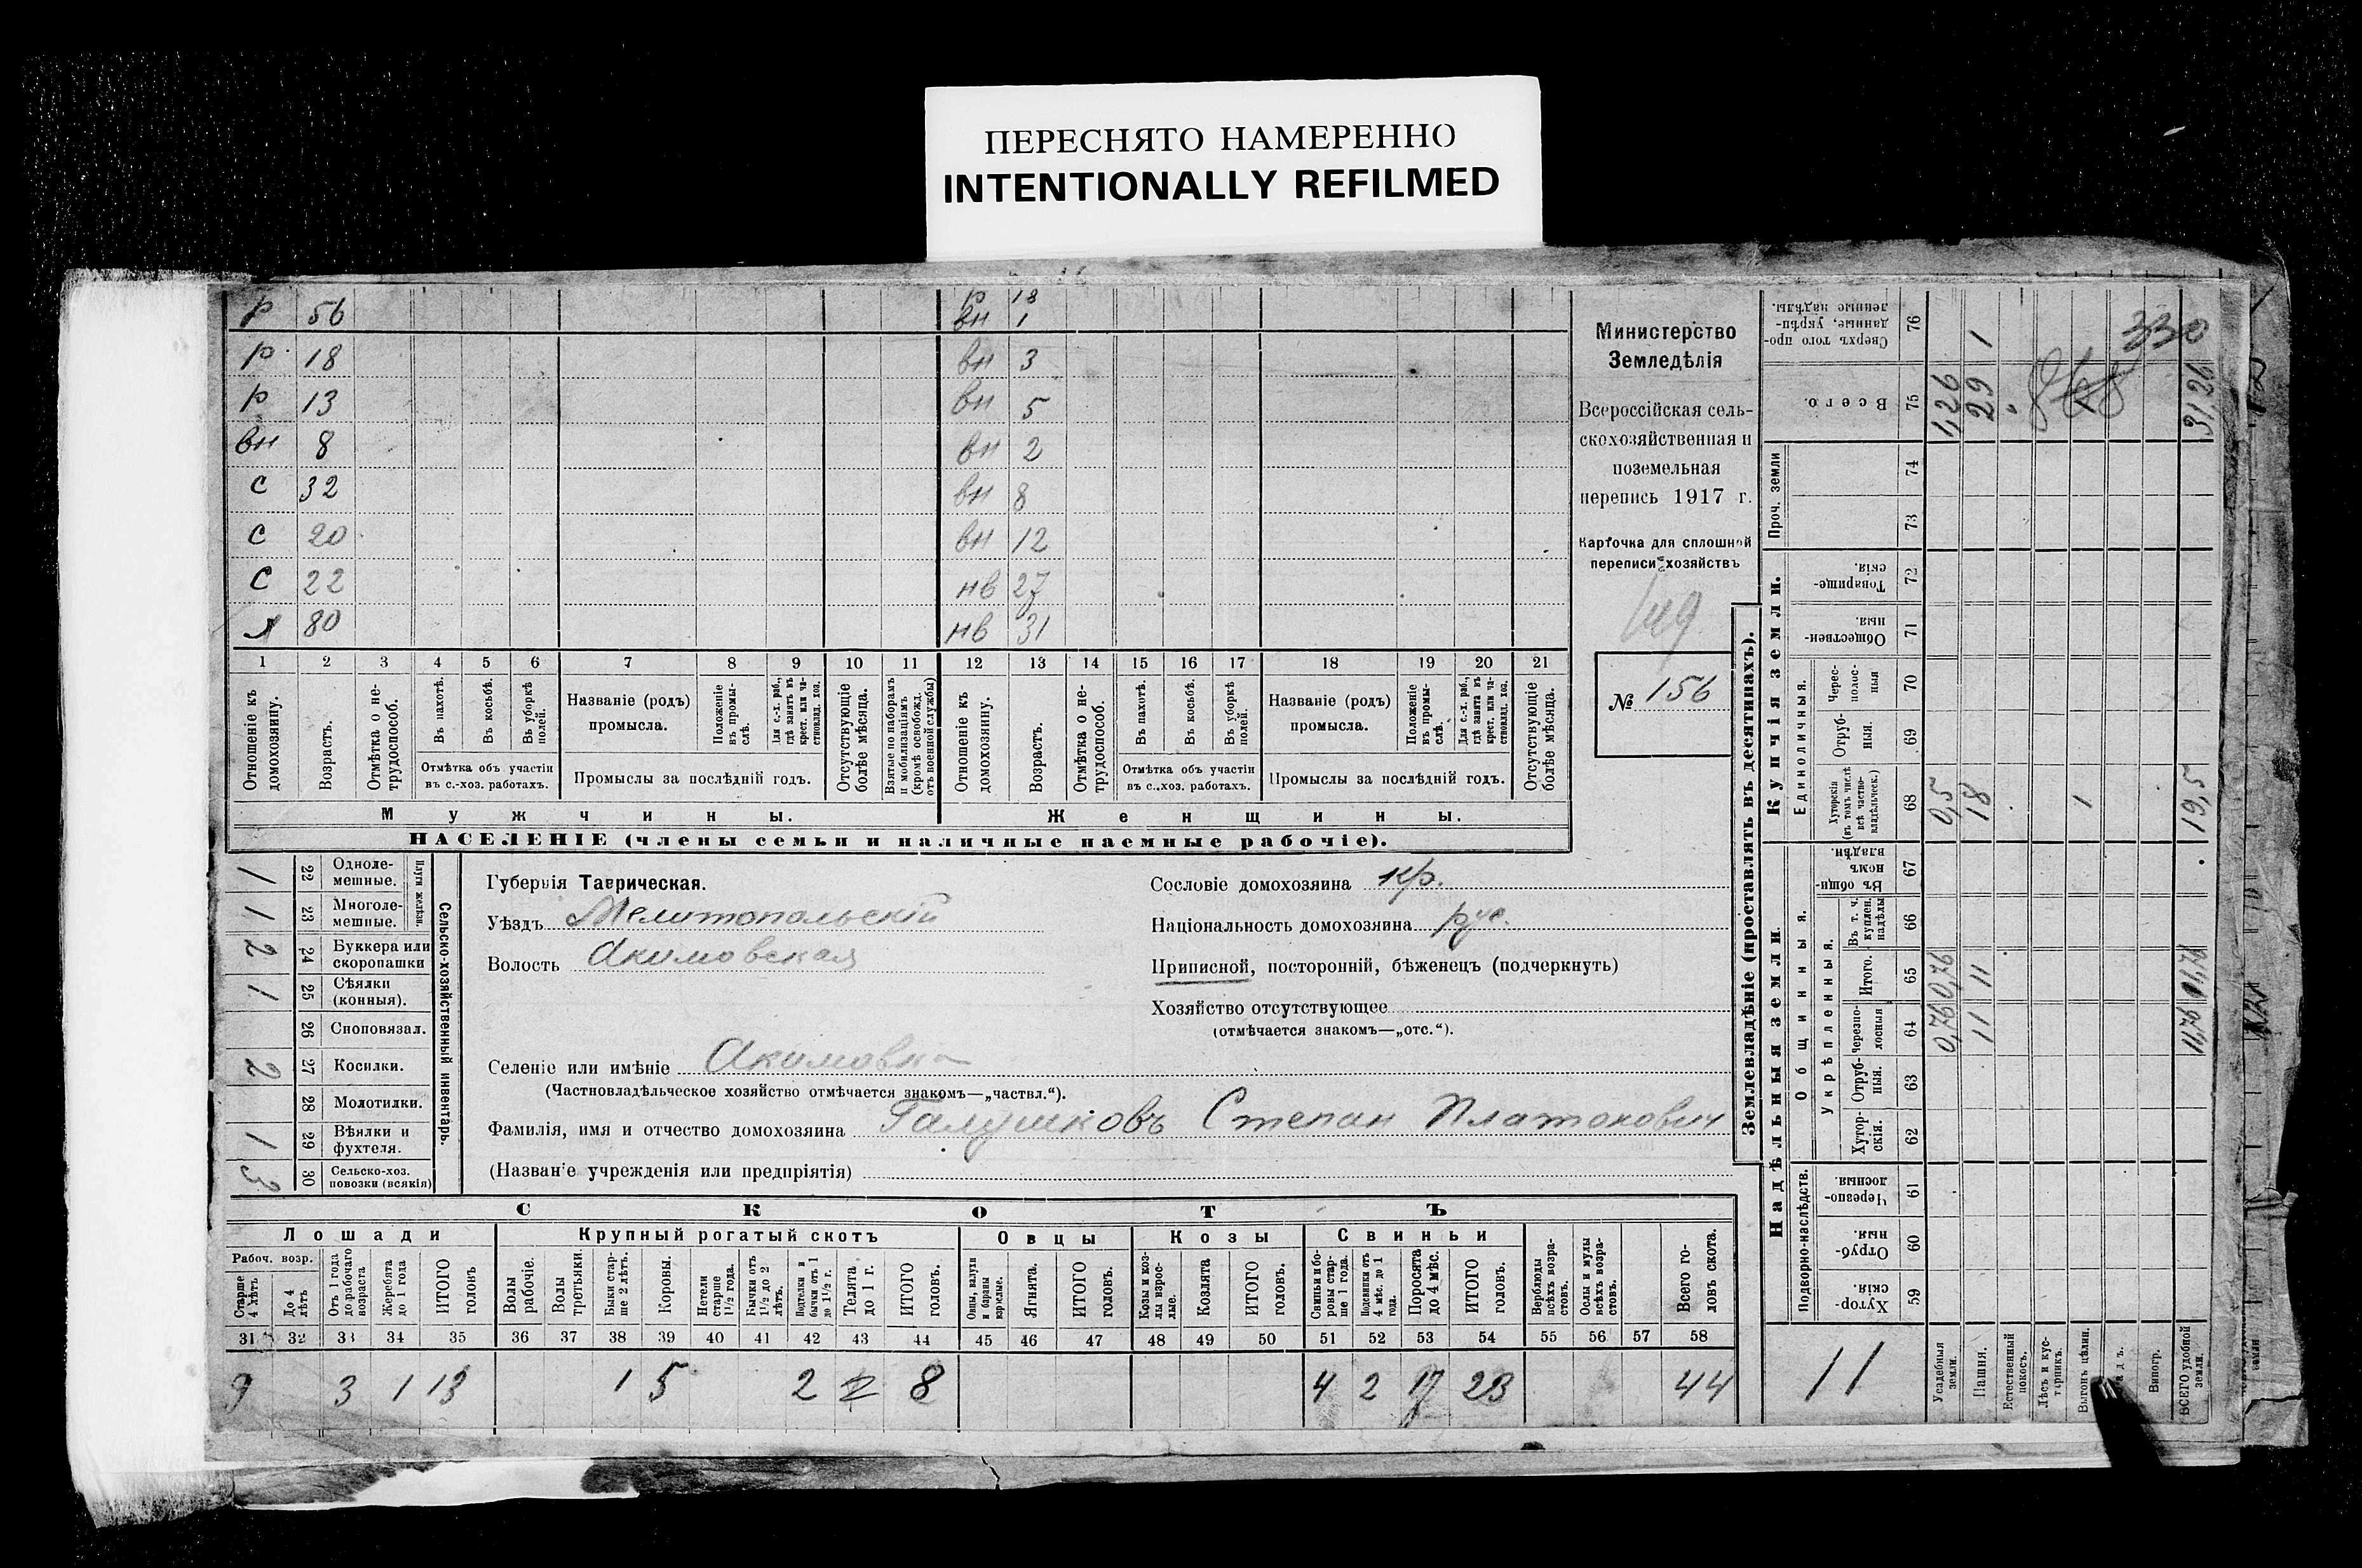 ПЕРЕСНЯТО НАМЕРЕННО
INTENTIONALLY REFILMED
р 56
р 18
вн 1
р 18
вн 3
р 13
вн 5
вн 8
вн 2
с 32
вн 8
с 20
вн 12
с 22
нв 27
я 80
нв 31
1 2 3 4 5 6 7 8 9 10 11 12 13 14 15 16 17 18 19 20 21
Отношеніе къ домохозяину.
Возрастъ.
Отмѣтка о не-трудоспособ.
Въ пахотѣ.
Въ косьбѣ.
Въ уборкѣ полей.
Отмѣтка объ участіи
въ с.-хоз. работахъ.
Названіе (родъ)
промысла.
Положеніе въ промы-слѣ.
Для с.-х. раб., гдѣ занятъ въ крест. или ча-стновлад. хоз.
Промыслы за послѣдній годъ.
Отсутствующіе болѣе мѣсяца.
Взятые по наборамъ и мобилизаціямъ (кромѣ освобожд. отъ военной службы)
Отношеніе къ домохозяину.
Возрастъ.
Отмѣтка о не-трудоспособ.
Въ пахотѣ.
Въ косьбѣ.
Въ уборкѣ полей.
Отмѣтка объ участіи
въ с.-хоз. работахъ.
Названіе (родъ)
промысла.
Положеніе въ промы-слѣ.
Для с.-х. раб., гдѣ занята въ крест. или ча-стновлад. хоз.
Промыслы за послѣдній годъ.
Отсутствующіе болѣе мѣсяца.
Мужчины.
Женщины.
НАСЕЛЕНІЕ (члены семьи и наличные наемные рабочіе).
Министерство
Земледѣлія
Всероссійская сель-
скохозяйственная и
поземельная
перепись 1917 г.
Карточка для сплошной
переписи хозяйствъ
№ 156
1 22 Одноле-мешные.
1 23 Многоле-мешные.
Плуги желѣзн.
2 24 Буккера или скоропашки
1 25 Сѣялки (конныя).
26 Сноповязал.
2 27 Косилки.
28 Молотилки.
1 29 Вѣялки и фухтеля.
3 30 Сельско-хоз. повозки (всякія)
Сельско-хозяйственный инвентарь.
Губернія Таврическая.
Уѣздъ Мелитопольскій
Волость Акимовская
Селеніе или имѣніе Акимовка
(Частновладѣльческое хозяйство отмѣчается знакомъ—„частвл.“).
Фамилія, имя и отчество домохозяина Галушковъ Степан Платонович
(Названіе учрежденія или предпріятія)
Сословіе домохозяина кр.
Національность домохозяина рус.
Приписной, посторонній, бѣженецъ (подчеркнуть)
Хозяйство отсутствующее
(отмѣчается знакомъ—„отс.“).
СКОТЪ
Лошади
Крупный рогатый скотъ
Овцы
Козы
Свиньи
Рабоч. возр.
Старше 4 лѣтъ
До 4 лѣтъ
Отъ 1 года до рабочаго возраста
Жеребята до 1 года
ИТОГО головъ
Волы рабочіе.
Волы третьяки.
Быки стар-ше 2 лѣтъ.
Коровы.
Нетели старше 1½ года.
Бычки отъ 1½ до 2 лѣтъ.
Подтелки и бычки отъ 1 до 1½ г.
Телята до 1 г.
ИТОГО головъ.
Овцы, валухи и бараны взрослые.
Ягнята.
ИТОГО головъ.
Козы и коз-лы взрос-лые.
Козлята
ИТОГО головъ.
Свиньи и бо-ровы стар-ше 1 года.
Подсвинки отъ 4 мѣс. до 1 года.
Поросята до 4 мѣс.
ИТОГО головъ.
Верблюды всѣхъ возра-стовъ.
Ослы и мулы всѣхъ возра-стовъ.
Всего го-ловъ скота.
31 32 33 34 35 36 37 38 39 40 41 42 43 44 45 46 47 48 49 50 51 52 53 54 55 56 57 58
9 3 1 13 1 5 2 2 8 4 2 17 23 44
Землевладѣніе (проставлять въ десятинахъ).
Надѣльныя земли.
Купчія земли.
Проч. земли
Подворно-наслѣдств.
Общинныя.
Укрѣпленныя.
Единоличныя.
Хутор-скія. 59
Отруб-ныя. 60
Черезпо-лосныя. 61
Хутор-скія. 62
Отруб-ныя. 63
Черезпо-лосныя 64
Итого. 65
Въ т. ч. куплен. надѣлы 66
Въ общин-номъ владѣн. 67
Хуторскія (въ томъ числѣ всѣ частно-владѣльческ.) 68
Отруб-ныя. 69
Черес-полос-ныя 70
Обществен-ныя. 71
Товарище-скія. 72
73
74
Всего. 75
Сверхъ того про-данные, укрѣп-ленные надѣлы. 76
11
Усадебныя земли. 0,76 0,76 0,5 1,26
Пашня. 11 11 18 29 1
Естественный покосъ.
Лѣсъ и кус-тарникъ.
Выгонъ цѣлин. 1
Виногр.
ВСЕГО удобной земли. 11,76 11,76 19,5 31,26
330